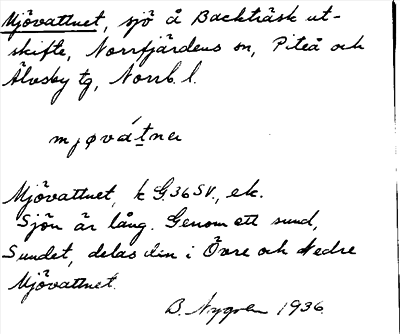 Mjövattnet, sjö å Backträsk ut-
skifte, Norrfjärdens sn, Piteå och
Älvsby tg, Norrb. l.
mjøvátnət
Mjövattnet, k G.36 SV., ek.
Sjön är lång. Genom ett sund,
Sundet, delas den i Övre och Nedre
Mjövattnet.
B. Nygren 1936